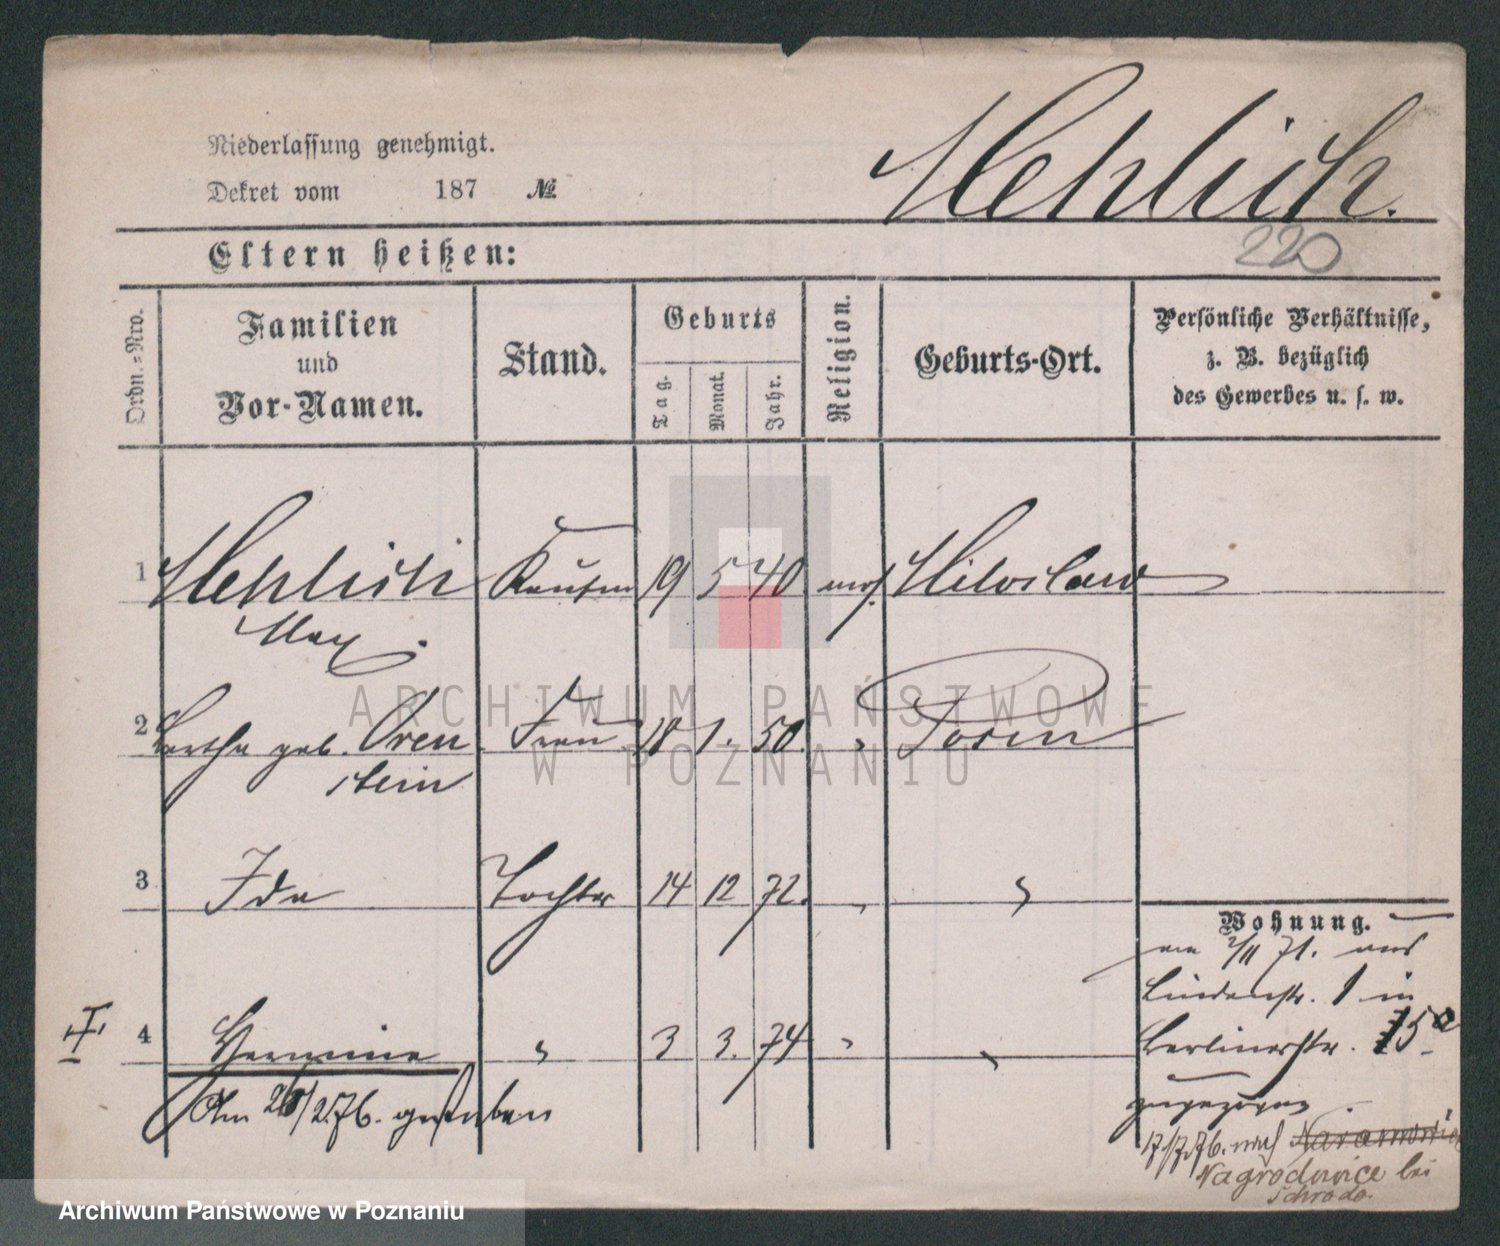 Niederlassung genehmigt.
Dekret vom 187 №
Mehlich.
220
Eltern heißen:
Ordn.-Nro.
Familien
und
Vor-Namen.
Stand.
Geburts
Tag.
Monat.
Jahr.
Religion.
Geburts-Ort.
Persönliche Verhältnisse,
z. B. bezüglich
des Gewerbes u. s. w.
1 Mehlich Kaufm 19 5 40 mos. Miloslaw
Max.
2 Bertha geb. Oren Frau 18 1. 50. " Posen
stein
3 Ida Tochter 14 12 72. " "
4 Hermine " 3 3. 74 " "
Am 26/2.76. gestorben
Wohnung.
am 2/11 71. aus
Lindenstr. 1 in
Berlinerstr. 15a
zugezogen
17/7.76. nach Naramowice
Nagrodowice bei
Schroda.
ARCHIWUM PAŃSTWOWE
W POZNANIU
Archiwum Państwowe w Poznaniu